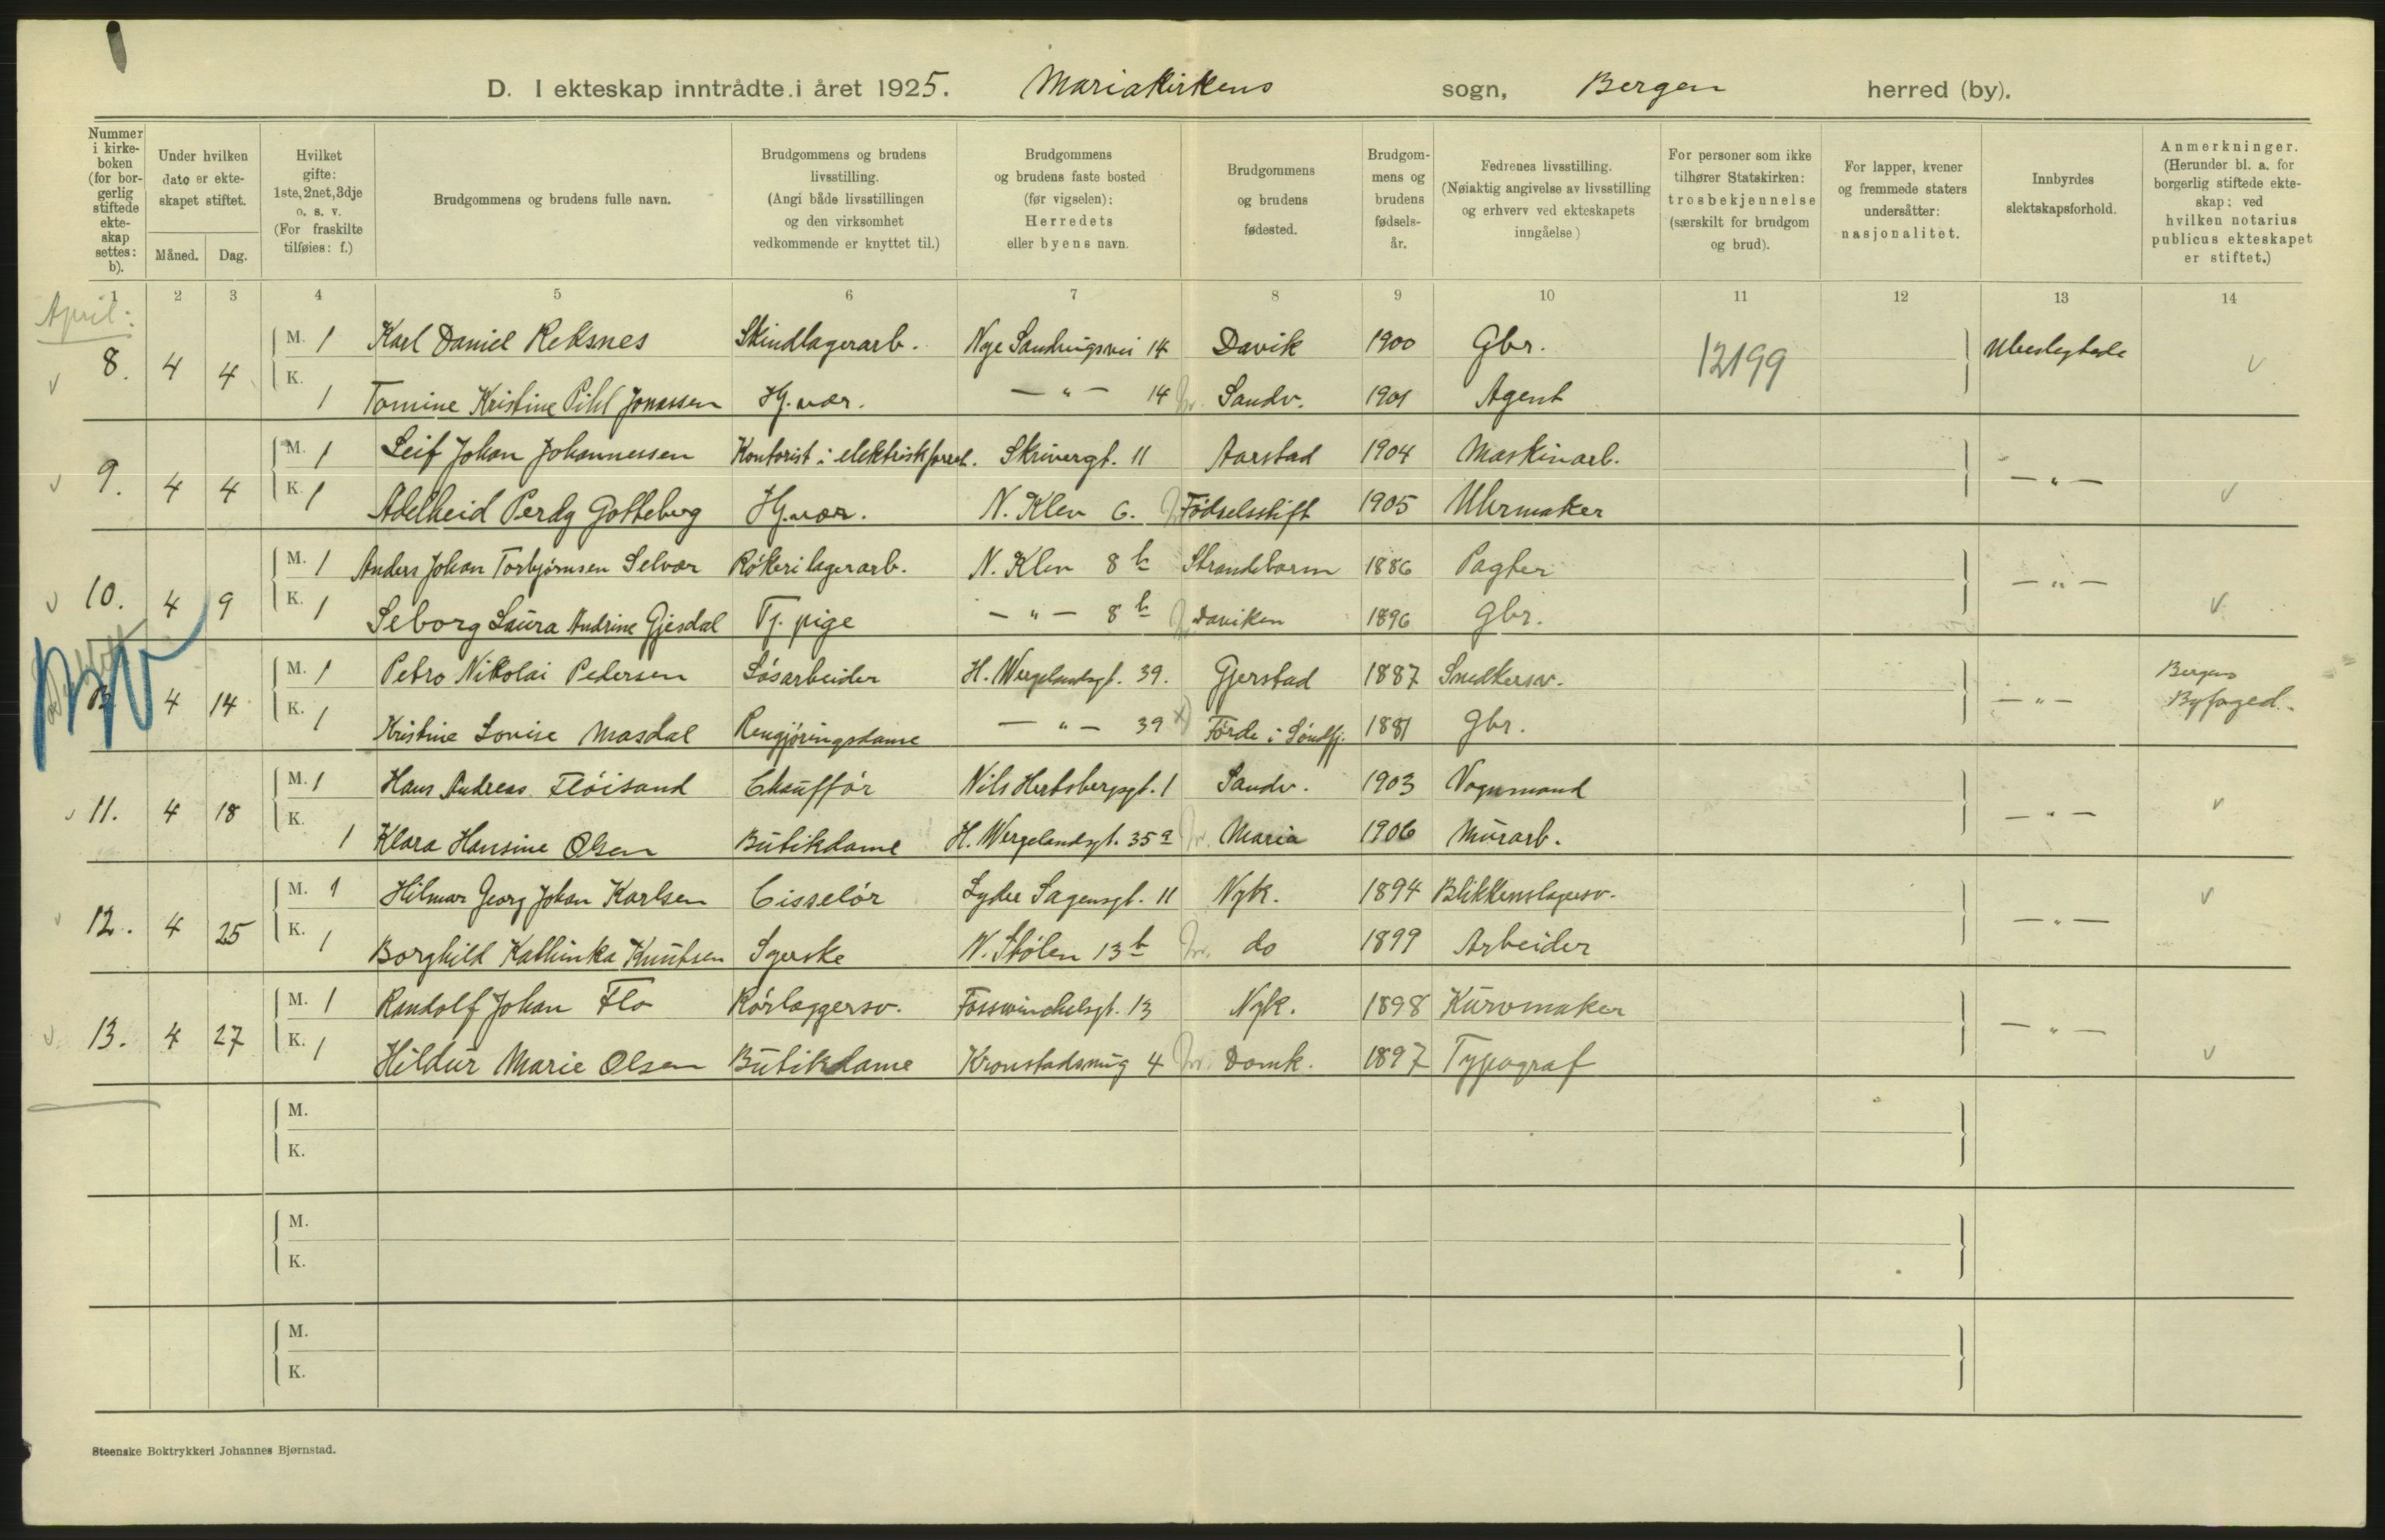 D. I ekteskap inntrådte i året 1925. Mariakirkens sogn, Bergen herred (by).
Nummer i kirke-boken (for bor-gerlig stiftede ekte-skap settes: b).
Under hvilken dato er ekte-skapet stiftet.
Måned. Dag.
Hvilket gifte: 1ste, 2net, 3dje o. s. v. (For fraskilte tilføies: f.)
Brudgommens og brudens fulle navn.
Brudgommens og brudens livsstilling. (Angi både livsstillingen og den virksomhet vedkommende er knyttet til.)
Brudgommens og brudens faste bosted (før vigselen): Herredets eller byens navn.
Brudgommens og brudens fødested.
Brudgom-mens og brudens fødsels-år.
Fedrenes livsstilling. (Nøiaktig angivelse av livsstilling og erhverv ved ekteskapets inngåelse)
For personer som ikke tilhører Statskirken: trosbekjennelse (særskilt for brudgom og brud).
For lapper, kvener og fremmede staters undersåtter: nasjonalitet.
Innbyrdes slektskapsforhold.
Anmerkninger. (Herunder bl. a. for borgerlig stiftede ekte-skap: ved hvilken notarius publicus ekteskapet er stiftet.)
1 2 3 4 5 6 7 8 9 10 11 12 13 14
April:
8. 4 4 M. 1 Karl Daniel Reksnes Skindlagerarb. Nye Sandviksvei 14 Davik 1900 Gbr. 12199 Ubeslegtede
K. 1 Tomine Kristine Pihl Jonassen Hj.vær. — " — 14 Sandv. 1901 Agent
9. 4 4 M. 1 Leif Johan Johannessen Kontorist i elektrisk forret. Skrivergt. 11 Aarstad 1904 Maskinarb. — " —
K. 1 Adelheid Perdy Gotteberg Hj.vær. N. Klev 6. Fødselsstift 1905 Uhrmaker
10. 4 9 M. 1 Anders Johan Torbjørnsen Selvær Røkeri lagerarb. N. Klev 8 b Strandebarm 1886 Pagter — " —
K. 1 Seborg Laura Andrine Gjesdal Tj. pige — " — 8 b Daviken 1896 Gbr.
B 4 14 M. 1 Petro Nikolai Pedersen Løsarbeider H. Wergelandsgt. 39. Gjerstad 1887 Snedkersv. — " — Bergens Byfoged.
K. 1 Kristine Lovise Masdal Rengjøringsdame — " — 39 x) Førde i Søndfj. 1881 Gbr.
11. 4 18 M. 1 Hans Andreas Fløisand Chauffør Nils Hertsbergsgt. 1 Sandv. 1903 Vognmand — " —
K. 1 Klara Hansine Olsen Butikdame H. Wergelandsgt. 35 a Maria 1906 Murarb.
12. 4 25 M. 1 Hilmar Georg Johan Karlsen Cisselør Lyder Sagensgt. 11 Nyk. 1894 Blikkenslagersv. — " —
K. 1 Borghild Kathinka Knutsen Syerske N. Stølen 13 b do 1899 Arbeider
13. 4 27 M. 1 Randolf Johan Flo Rørlæggersv. Fosswinckelsgt. 13 Nyk. 1898 Kurvmaker — " —
K. 1 Hildur Marie Olsen Butikdame Kronstadsmug 4 Domk. 1897 Typograf
M.
K.
M.
K.
M.
K.
Steenske Boktrykkeri Johannes Bjørnstad.